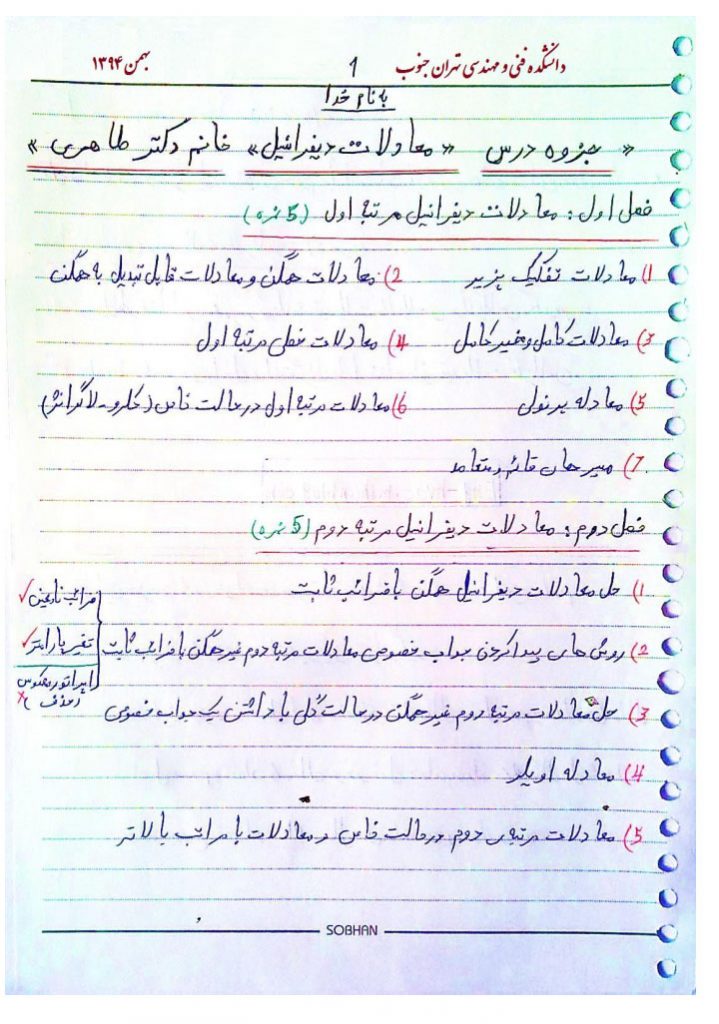 دانشکده فنی و مهندسی تهران جنوب 1 بهمن ۱۳۹۴
به نام خدا
« جزوه درس «معادلات دیفرانیل» خانم دکتر طاهری »
فصل اول: معادلات دیفرانیل مرتبه اول (5 نمره)
1) معادلات تفکیک پزیر 2) معادلات همگن و معادلات قابل تبدیل به همگن
3) معادلات کامل و غیر کامل 4) معادلات خطی مرتبه اول
5) معادله برنولی 6) معادلات مرتبه اول در حالت خاص (کلرو-لاگرانژ)
7) مسیر های قائم و متعامد
فصل دوم: معادلات دیفرانیل مرتبه دوم (5 نمره)
1) حل معادلات دیفرانیل همگن با ضرائب ثابت
2) روش های پیدا کردن جواب خصوصی معادلات مرتبه دوم غیر همگن با ضرائب ثابت
ضرائب نامعین ✓
تغیر پارامتر ✓
اپراتور معکوس
(حذف) ×
3) حل معادلات مرتبه دوم غیر همگن در حالت کلی با داشتن یک جواب خصوصی
4) معادله اویلر
5) معادلات مرتبه ی دوم در حالت خاص و معادلات با مراتب بالاتر
SOBHAN